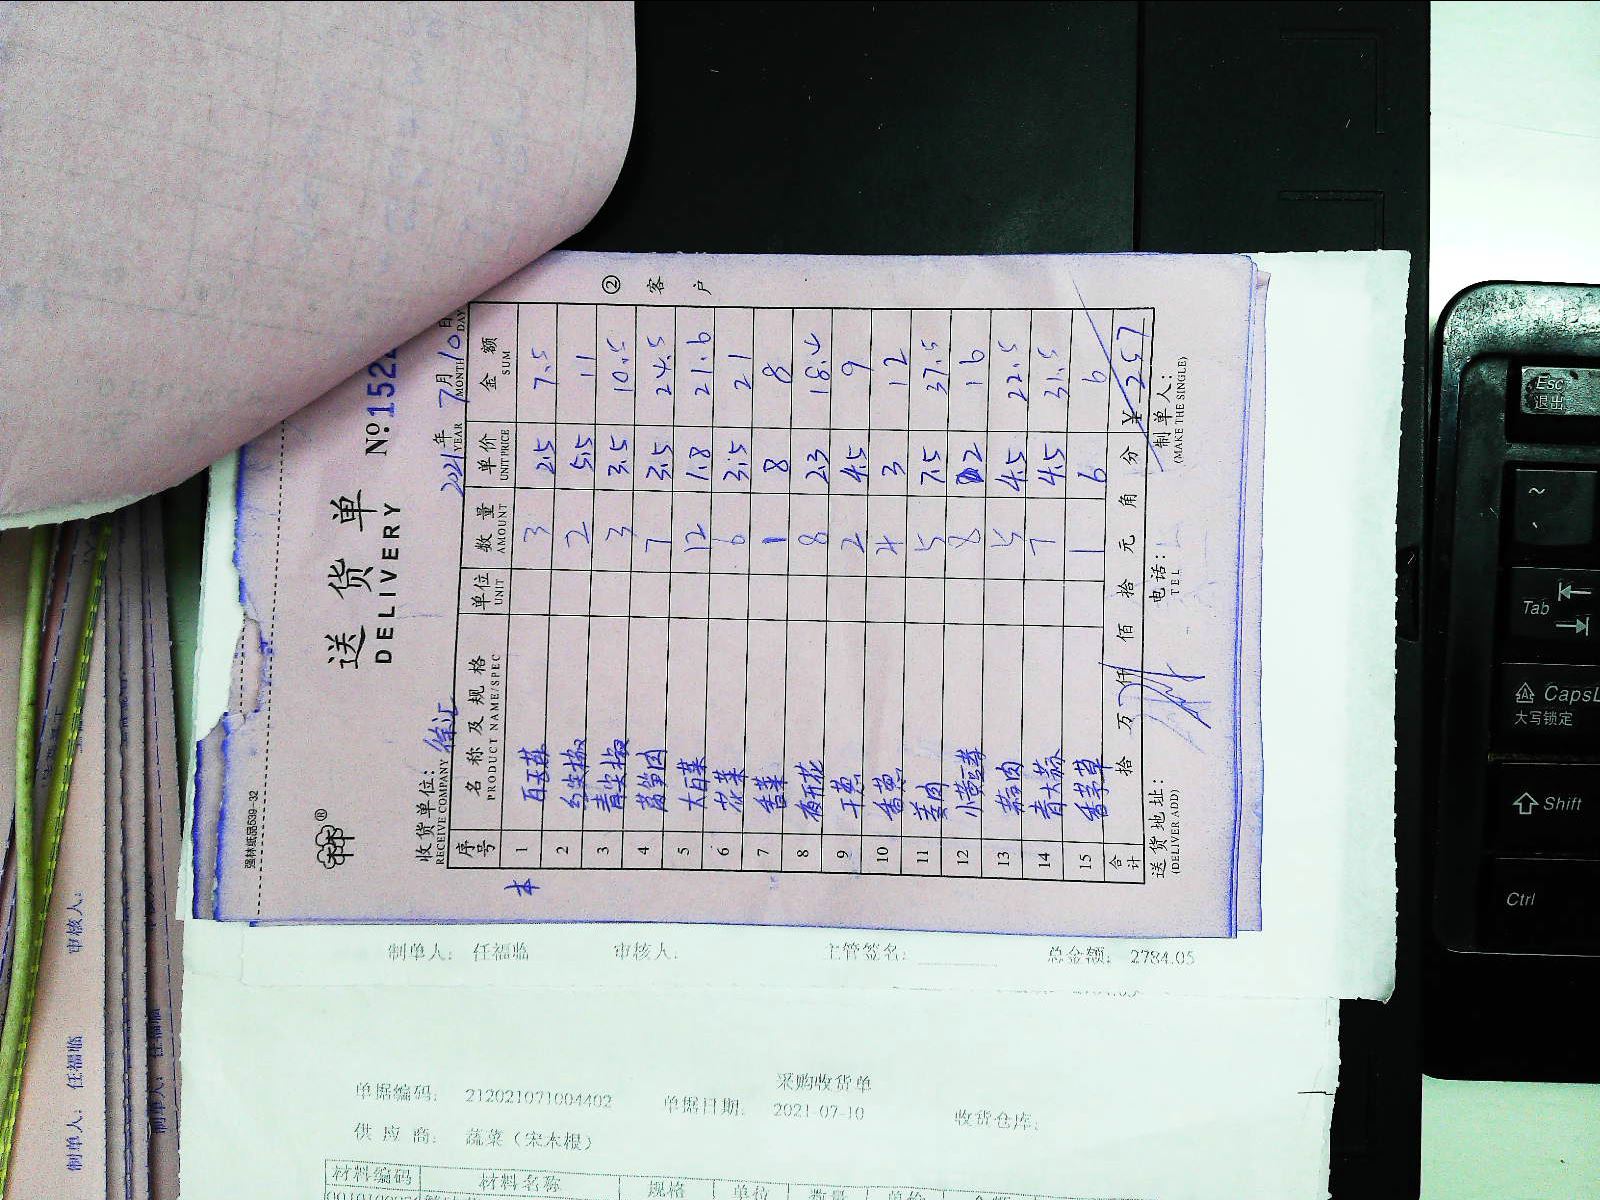 强林纸品539-32
送货单
DELIVERY
№:152
收货单位: 徐汇
RECEIVE COMPANY
2021年 7月 10日
YEAR MONTH DAY
序号 名称及规格 单位 数量 单价 金额
PRODUCT NAME/SPEC UNIT AMOUNT UNIT PRICE SUM
本
1 3 2.5 7.5
2 2 5.5 11
3 青尖椒 3 3.5 10.5
4 莴笋肉 7 3.5 24.5
5 大白菜 12 1.8 21.6
6 花菜 6 3.5 21
7 香菜 1 8 8
8 8 2.3 18.4
9 干葱 2 4.5 9
10 香葱 4 3 12
11 姜肉 5 7.5 37.5
12 8 2 16
13 蒜肉 5 4.5 22.5
14 青大蒜 7 4.5 31.5
15 香茅草 1 6 6
合计 拾 万 仟 佰 拾 元 角 分 ¥ 257
送货地址: 电话: 制单人:
(DELIVER ADD) TEL (MAKE THE SINGLE)
② 客户
制单人: 任福临 审核人: 主管签名: 总金额: 2784.05
采购收货单
单据编码: 212021071004402 单据日期: 2021-07-10 收货仓库:
供应商: 蔬菜(宋木根)
材料编码 材料名称 规格 单位 数量 单价
制单人: 任福临 审核人:
制单人: 任福临
Esc
退出
~
Tab
CapsL
大写锁定
Shift
Ctrl